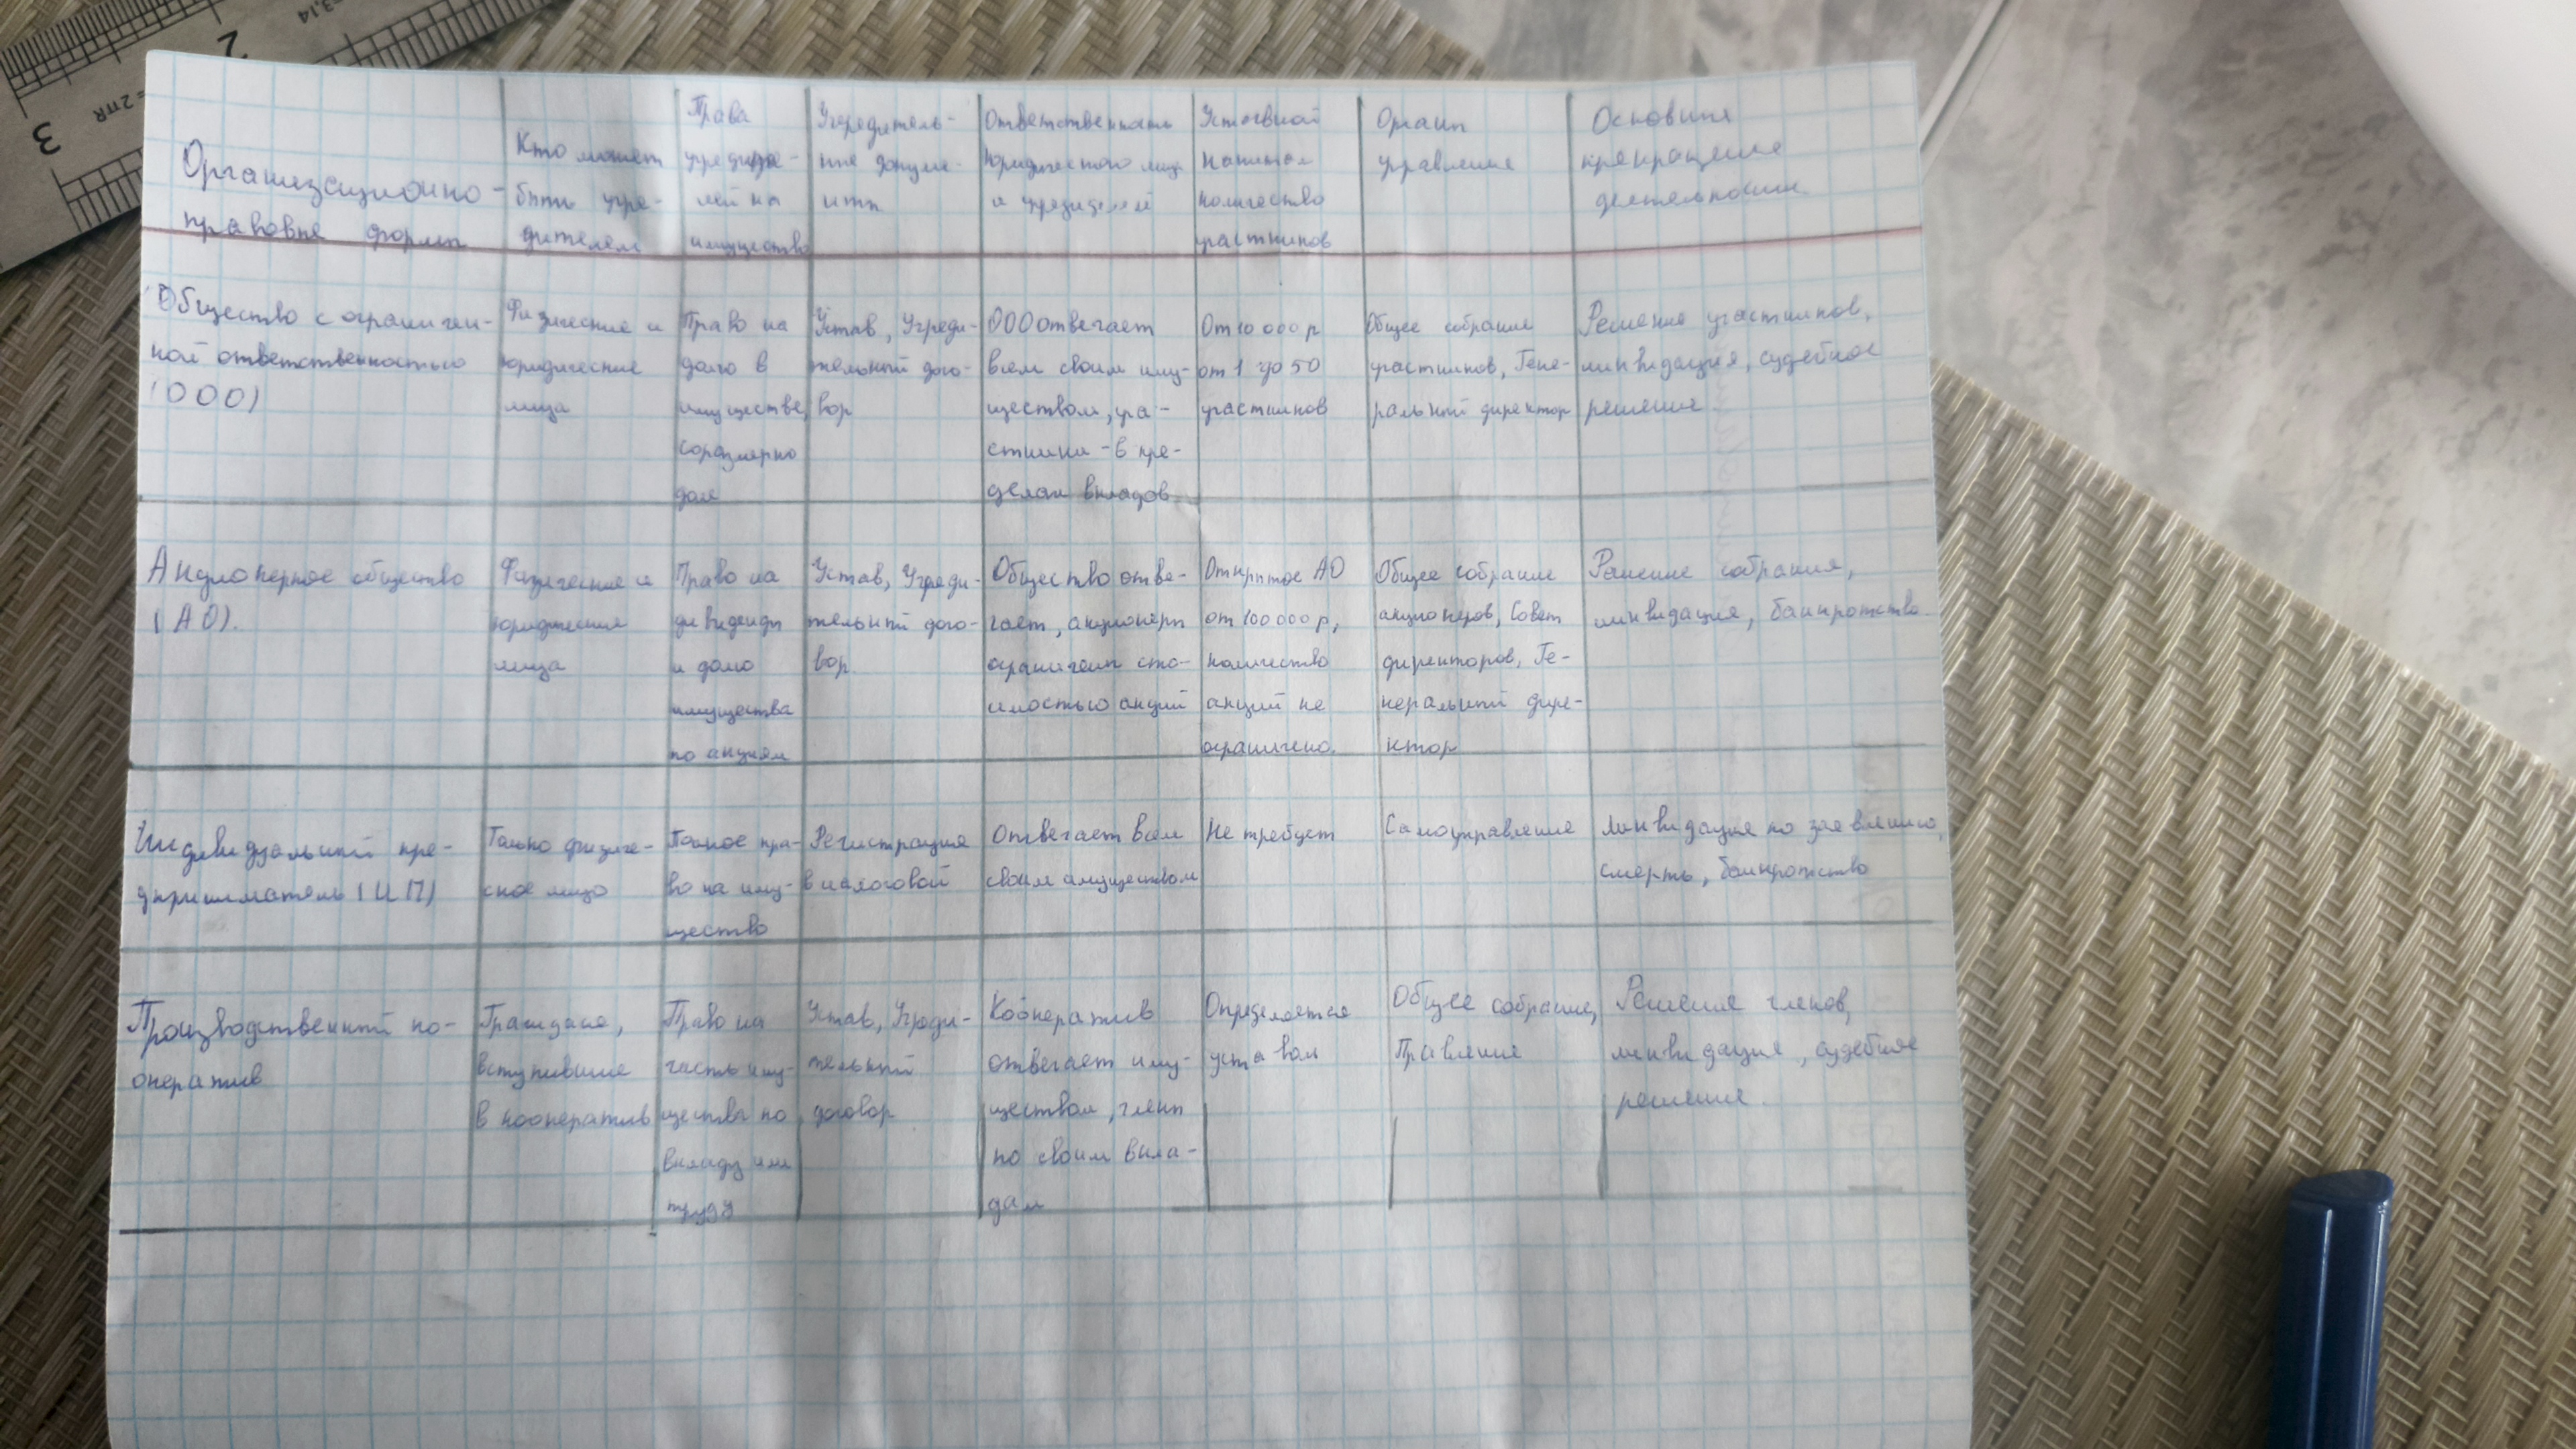 Организационно-
правовые формы
Кто может
быть учре-
дителем
Права
учредите-
лей на
имущество
Учредитель-
ные докуме-
нты
Ответственность
юридического лица
и учредителей
Уставной
капитал
количество
участников
Органы
управление
Основания
прекращение
деятельности
Общество с ограничен-
ной ответственностью
(ООО)
Физические и
юридические
лица
Право на
долю в
имуществе,
соразмерно
доле
Устав, Учреди-
тельный дого-
вор
ООО отвечает
всем своим иму-
ществом, уча-
стники - в пре-
делах вкладов
От 10 000 р
от 1 до 50
участников
Общее собрание
участников, Гене-
ральный директор
Решение участников,
ликвидация, судебное
решение.
Акционерное общество
(АО).
Физические и
юридические
лица
Право на
дивиденды
и долю
имущества
по акциям
Устав, Учреди-
тельный дого-
вор.
Общество отве-
чает, акционеры
ограничены сто-
имостью акций
Открытое АО
от 100 000 р,
количество
акций не
ограничено.
Общее собрание
акционеров, Совет
директоров, Ге-
неральный дире-
ктор
Решение собрания,
ликвидация, банкротство.
Индивидуальный пре-
дприниматель (ИП)
Только физиче-
ское лицо
Полное пра-
во на иму-
щество
Регистрация
в налоговой
Отвечает всем
своим имуществом
Не требует
Самоуправление
Ликвидация по заявлению,
смерть, банкротство
Производственный ко-
оператив
Граждане,
вступившие
в кооператив
Право на
часть иму-
щества по
вкладу или
труду
Устав, Учреди-
тельный
договор
Кооператив
отвечает иму-
ществом, члены
по своим вкла-
дам
Определяется
уставом
Общее собрание,
Правление
Решение членов,
ликвидация, судебное
решение.
3
2
= 2πR
=3,14